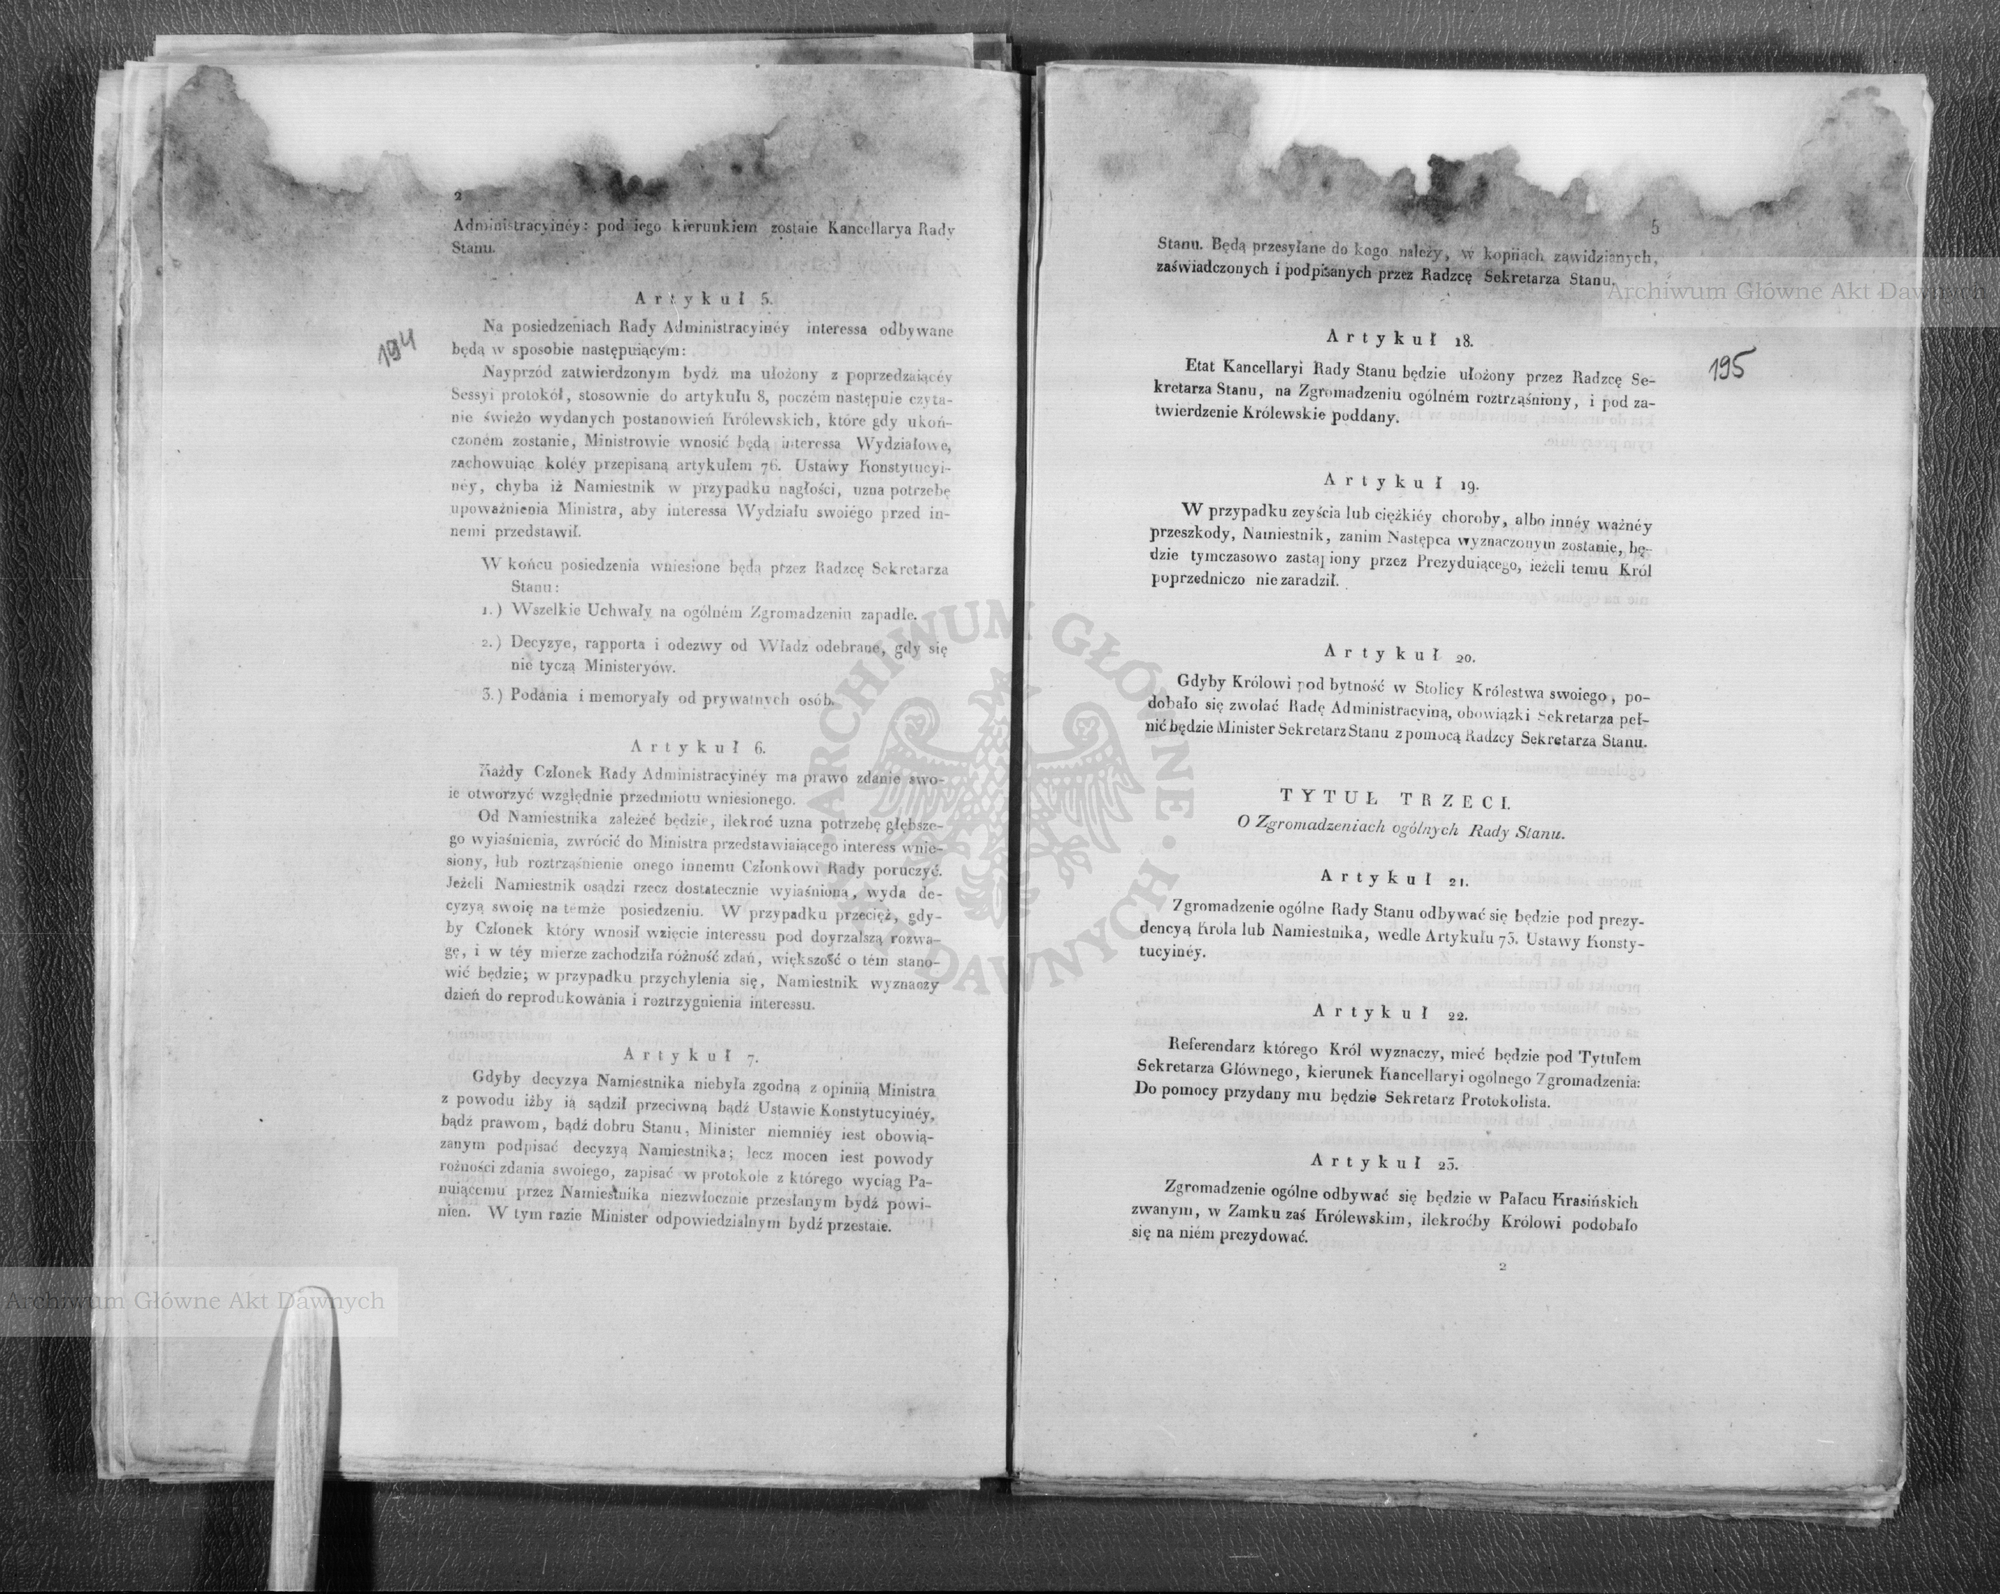 2
Administracyinéy: pod iego kierunkiem zostaie Kancellarya Rady
Stanu.
Artykuł 5.
194
Na posiedzeniach Rady Administracyinéy interessa odbywane
będą w sposobie następuiącym:
Nayprzód zatwierdzonym bydź ma ułożony z poprzedzaiącéy
Sessyi protokół, stosownie do artykułu 8, poczém następuie czyta-
nie świeżo wydanych postanowień Królewskich, które gdy ukoń-
czoném zostanie, Ministrowie wnosić będą interessa Wydziałowe,
zachowuiąc koléy przepisaną artykułem 76. Ustawy Konstytucyi-
néy, chyba iż Namiestnik w przypadku nagłości, uzna potrzebę
upoważnienia Ministra, aby interessa Wydziału swoiégo przed in-
nemi przedstawił.
W końcu posiedzenia wniesione będą przez Radzcę Sekretarza
Stanu:
1.) Wszelkie Uchwały na ogólném Zgromadzeniu zapadłe.
2.) Decyzye, rapporta i odezwy od Władz odebrane, gdy się
nie tyczą Ministeryów.
3.) Podania i memoryały od prywatnych osób.
Artykuł 6.
Każdy Członek Rady Administracyinéy ma prawo zdanie swo-
ie otworzyć względnie przedmiotu wniesionego.
Od Namiestnika zależeć będzie, ilekroć uzna potrzebę głębsze-
go wyiaśnienia, zwrócić do Ministra przedstawiaiącego interess wnie-
siony, lub roztrząśnienie onego innemu Członkowi Rady poruczyć.
Jeżeli Namiestnik osądzi rzecz dostatecznie wyiaśnioną, wyda de-
cyzyą swoię na temże posiedzeniu. W przypadku przecięż, gdy-
by Członek który wnosił wzięcie interessu pod doyrzalszą rozwa-
gę, i w téy mierze zachodziła różność zdań, większość o tém stano-
wić będzie; w przypadku przychylenia się, Namiestnik wyznaczy
dzień do reprodukowania i roztrzygnienia interessu.
Artykuł 7.
Gdyby decyzya Namiestnika niebyła zgodną z opiniią Ministra
z powodu iżby ią sądził przeciwną bądź Ustawie Konstytucyinéy,
bądź prawom, bądź dobru Stanu, Minister niemniéy iest obowią-
zanym podpisać decyzyą Namiestnika; lecz mocen iest powody
rożności zdania swoiego, zapisać w protokole z którego wyciąg Pa-
nuiącemu przez Namiestnika niezwłocznie przesłanym bydź powi-
nien. W tym razie Minister odpowiedzialnym bydź przestaie.
Archiwum Główne Akt Dawnych
5
Stanu. Będą przesyłane do kogo należy, w kopiiach zawidzianych,
zaświadczonych i podpisanych przez Radzcę Sekretarza Stanu.
Archiwum Główne Akt Dawnych
Artykuł 18.
195
Etat Kancellaryi Rady Stanu będzie ułożony przez Radzcę Se-
kretarza Stanu, na Zgromadzeniu ogólném roztrząśniony, i pod za-
twierdzenie Królewskie poddany.
Artykuł 19.
W przypadku zeyścia lub ciężkiéy choroby, albo innéy ważnéy
przeszkody, Namiestnik, zanim Następca wyznaczonym zostanie, bę-
dzie tymczasowo zastąpiony przez Prezyduiącego, ieżeli temu Król
poprzedniczo nie zaradził.
Artykuł 20.
Gdyby Królowi pod bytność w Stolicy Królestwa swoiego, po-
dobało się zwołać Radę Administracyiną, obowiązki Sekretarza peł-
nić będzie Minister Sekretarz Stanu z pomocą Radzcy Sekretarza Stanu.
TYTUŁ TRZECI.
O Zgromadzeniach ogólnych Rady Stanu.
Artykuł 21.
Zgromadzenie ogólne Rady Stanu odbywać się będzie pod prezy-
dencyą Króla lub Namiestnika, wedle Artykułu 73. Ustawy Konsty-
tucyinéy.
Artykuł 22.
Referendarz którego Król wyznaczy, mieć będzie pod Tytułem
Sekretarza Głównego, kierunek Kancellaryi ogólnego Zgromadzenia:
Do pomocy przydany mu będzie Sekretarz Protokolista.
Artykuł 23.
Zgromadzenie ogólne odbywać się będzie w Pałacu Krasińskich
zwanym, w Zamku zaś Królewskim, ilekroćby Królowi podobało
się na niém prezydować.
2
ARCHIWUM GŁÓWNE AKT DAWNYCH